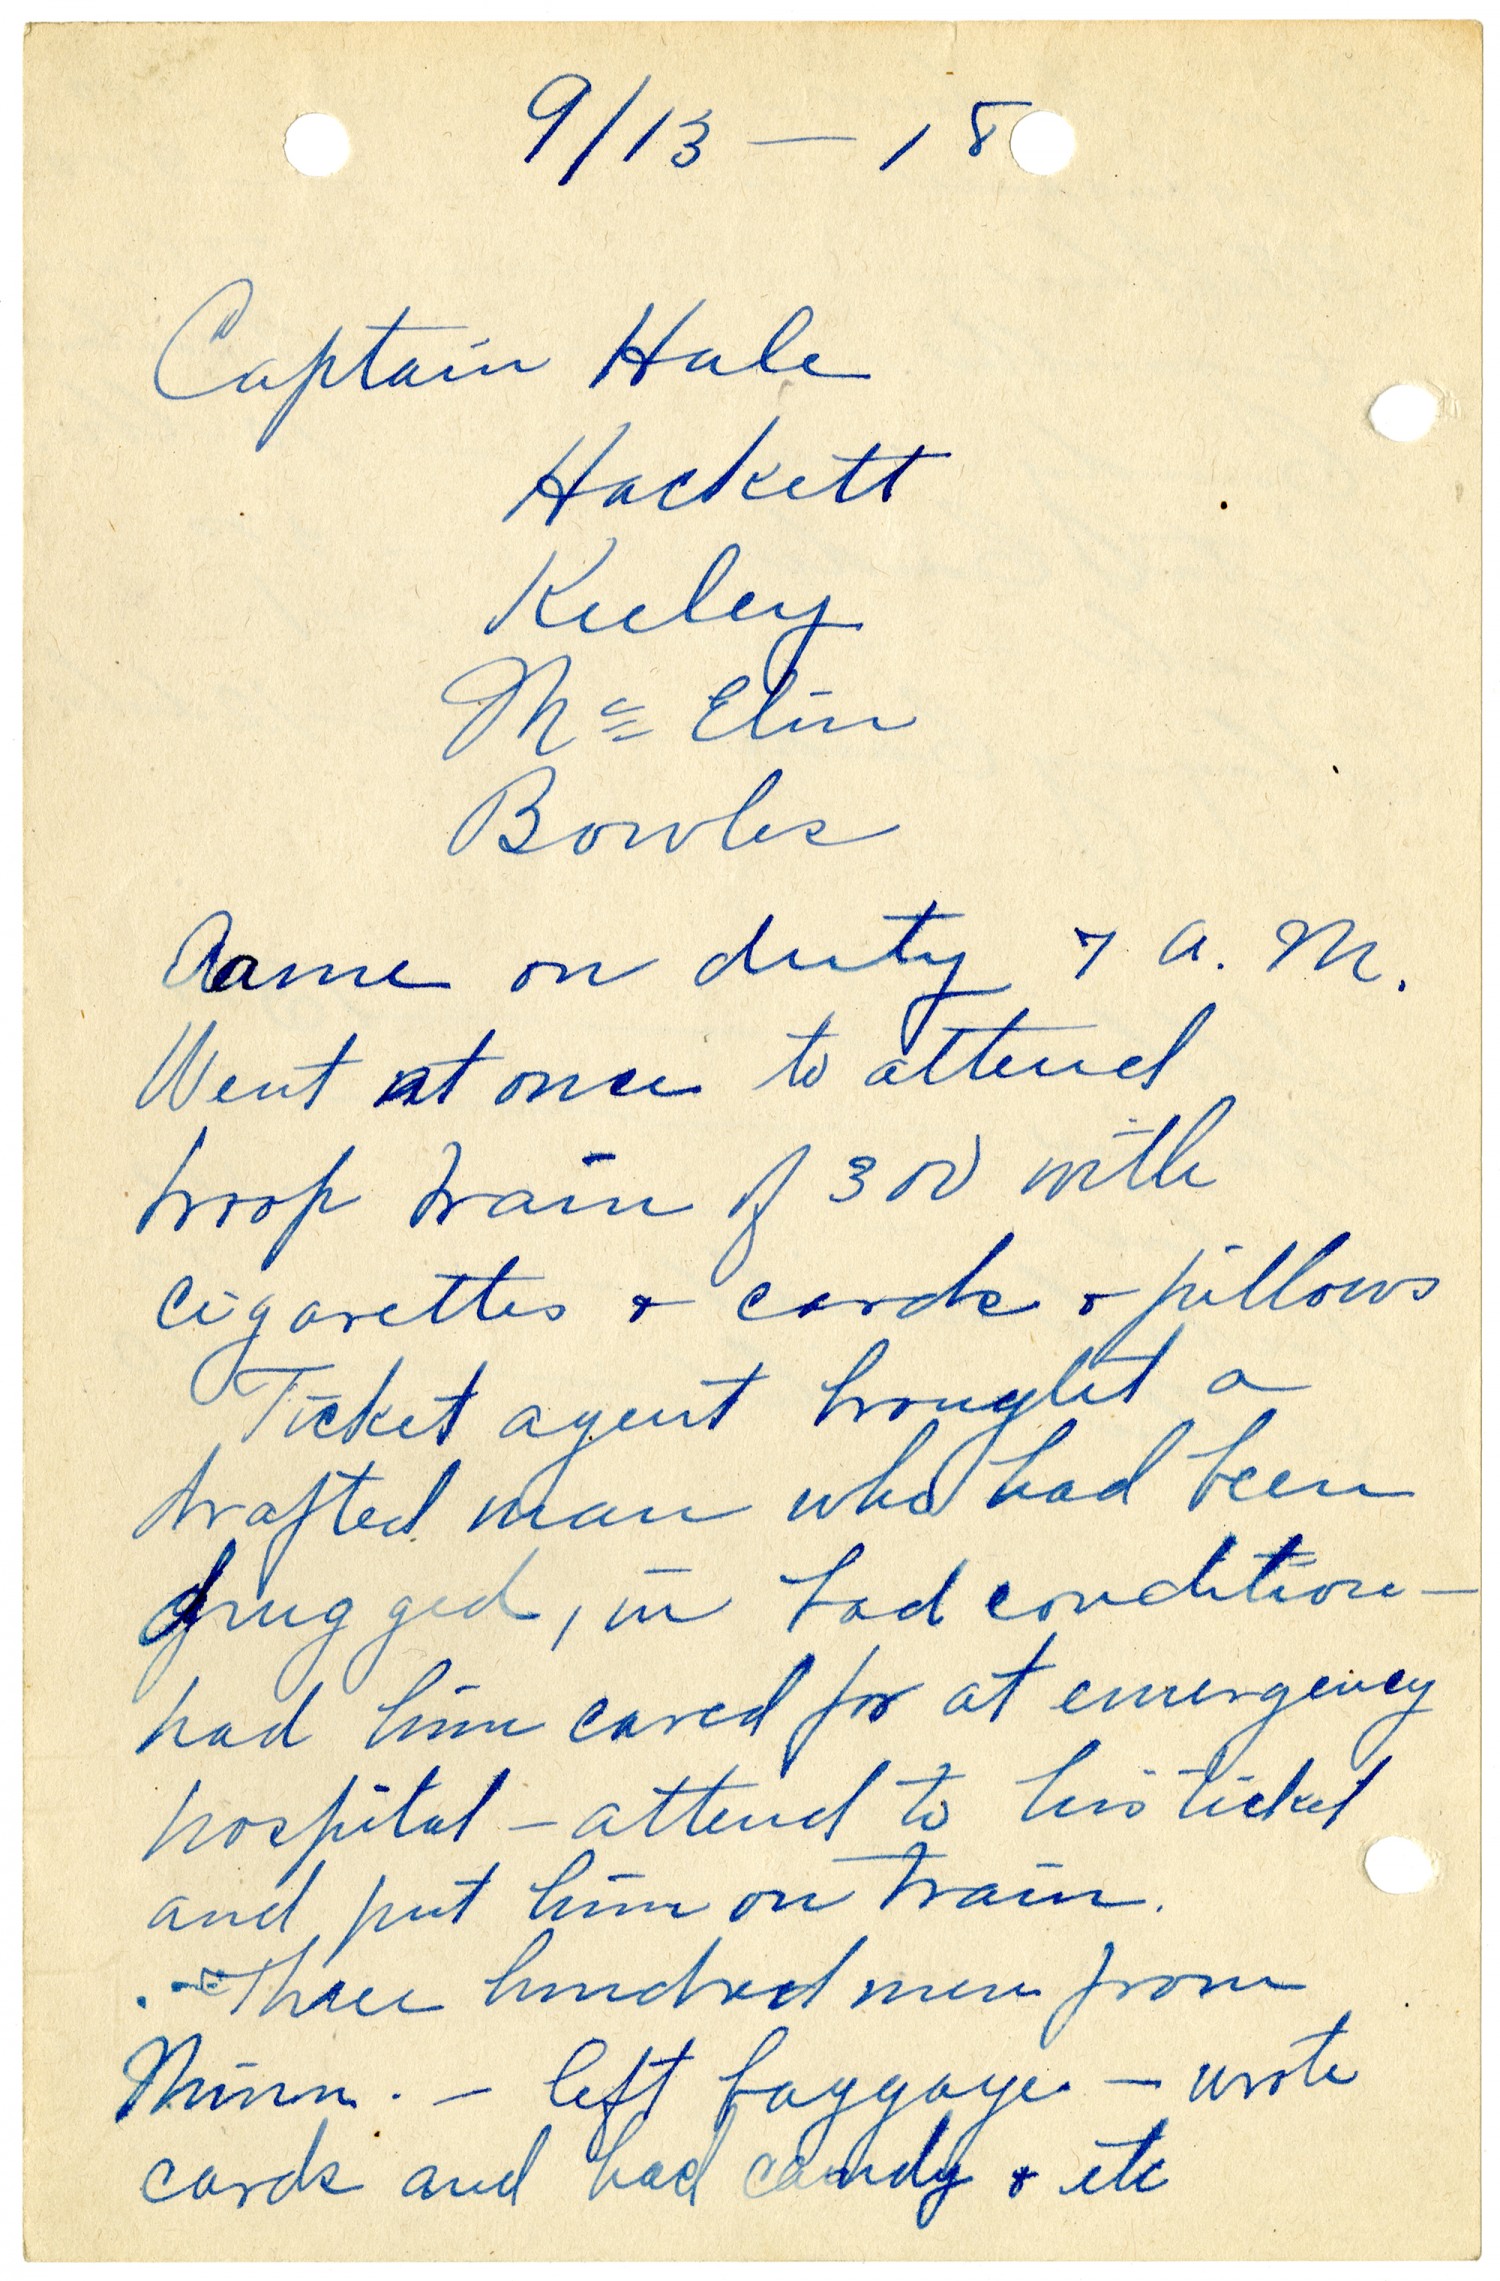 9/13 — 18
Captain Hale
Hackett
Keeley
Mc Elin
Bowles
Came on duty 7 A. M.
Went at once to attend
troop train of 300 with
cigarettes & cards & pillows
Ticket agent brought a
drafted man who had been
drugged, in bad condition —
had him cared for at emergency
hospital — attend to his ticket
and put him on train.
Three hundred men from
Minn. — left baggage — wrote
cards and had candy & etc